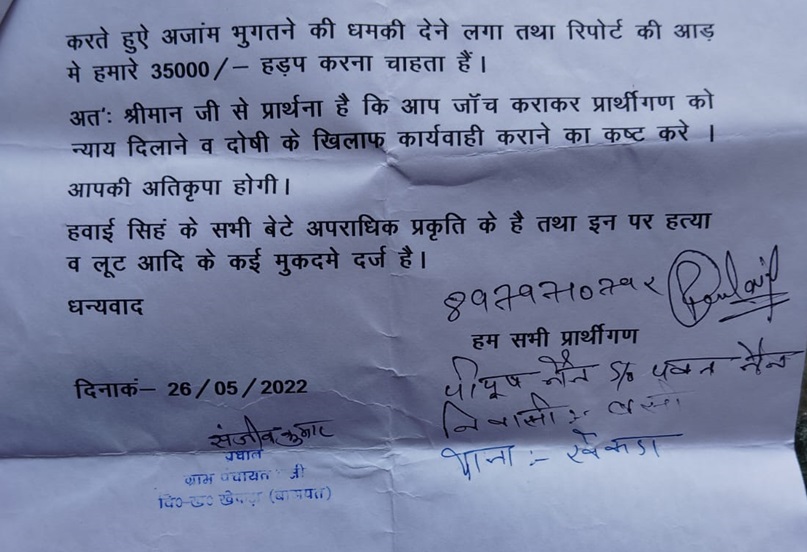 करते हुऐ अजांम भुगतने की धमकी देने लगा तथा रिपोर्ट की आड़
मे हमारे 35000/– हड़प करना चाहता हैं।
अतः श्रीमान जी से प्रार्थना है कि आप जॉच कराकर प्रार्थीगण को
न्याय दिलाने व दोषी के खिलाफ कार्यवाही कराने का कष्ट करे ।
आपकी अतिकृपा होगी।
हवाई सिहं के सभी बेटे अपराधिक प्रकृति के है तथा इन पर हत्या
व लूट आदि के कई मुकदमे दर्ज है।
धन्यवाद
हम सभी प्रार्थीगण
पीयूष नैन S/o पवन नैन
निवासी :-
थाना :- खेकडा
दिनाकं– 26/05/2022
संजीव कुमार
प्रधान
ग्राम पंचायत
वि०ख० खेकड़ा (बागपत)